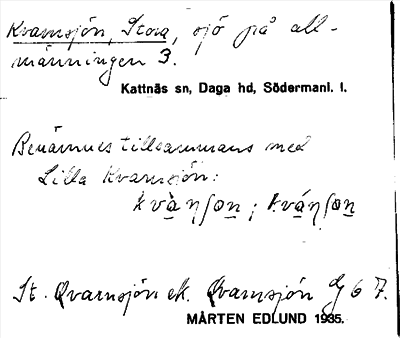 Kvarnsjön, Stora, sjö på all-
männingen 3.
Kattnäs sn, Daga hd, Södermanl. l.
Benämnes tillsammans med
Lilla Kvarnsjön:
kvàηʃo̱ṉ; kvá̱ηʃo̱ṉ
St. Qvarnsjön ek. Qvarnsjön Lj 6 7.
MÅRTEN EDLUND 1935.